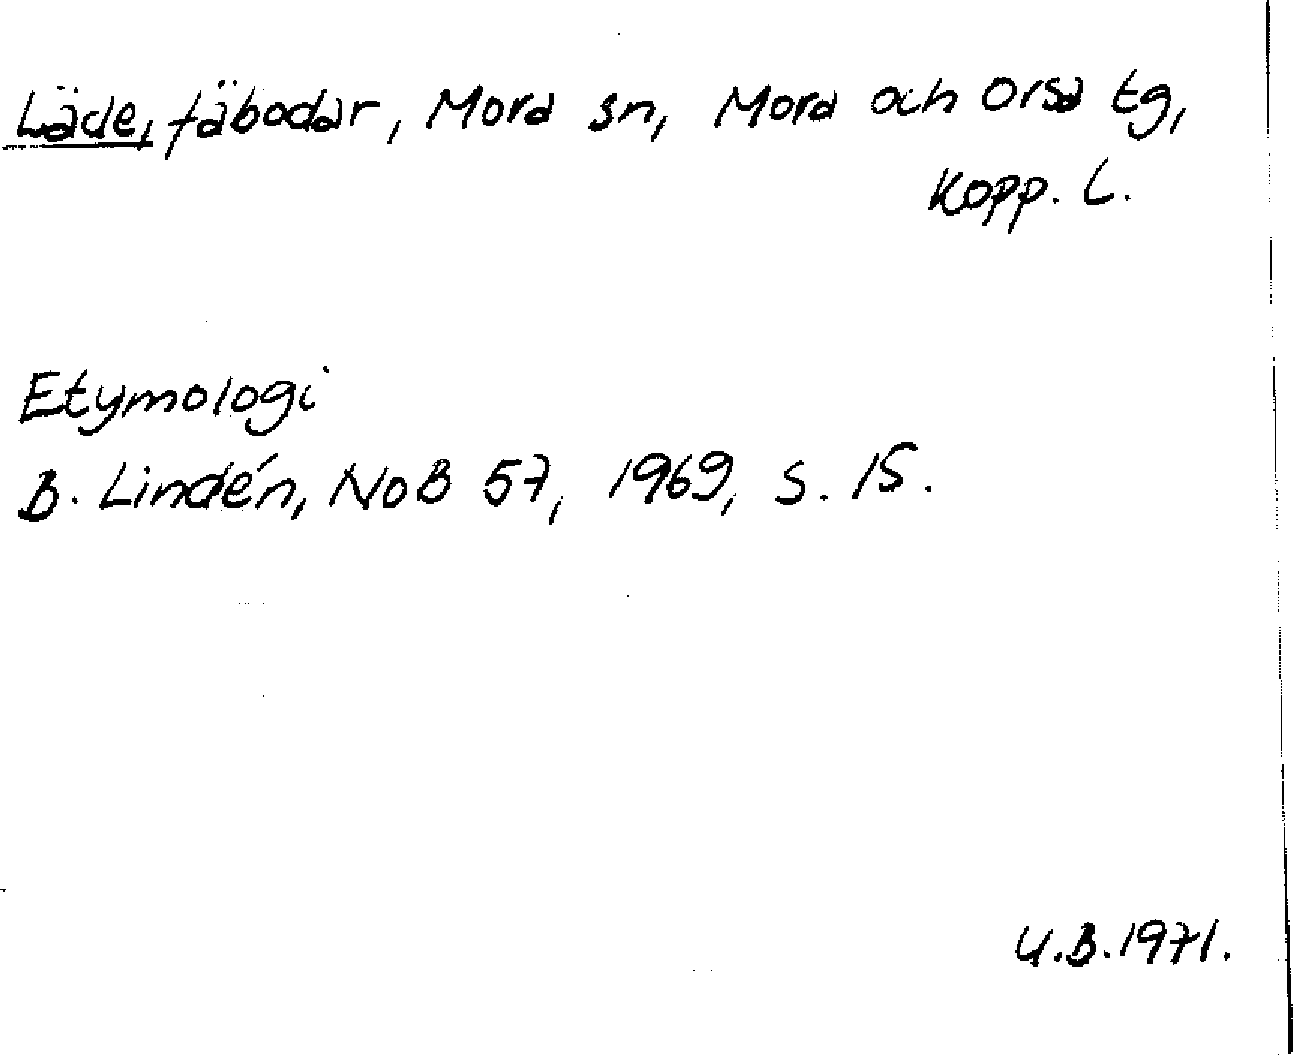 Läde, fäbodar, Mora sn, Mora och Orsa tg,
Kopp. L.
Etymologi
B. Lindén, NoB 57, 1969, s. 15.
U.B. 1971.